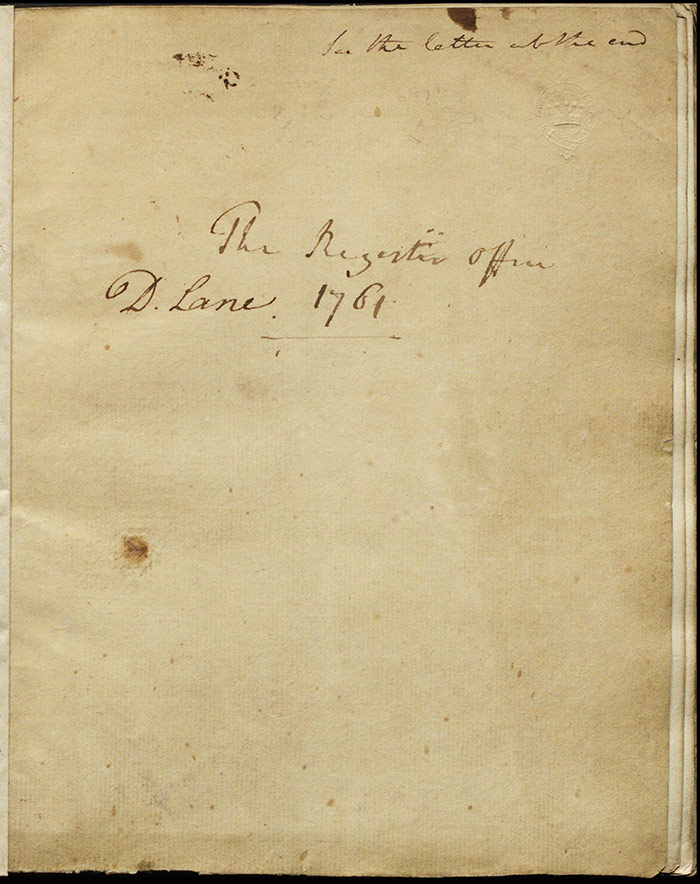 See the letter at the end
The Register Office
D. Lane. 1761